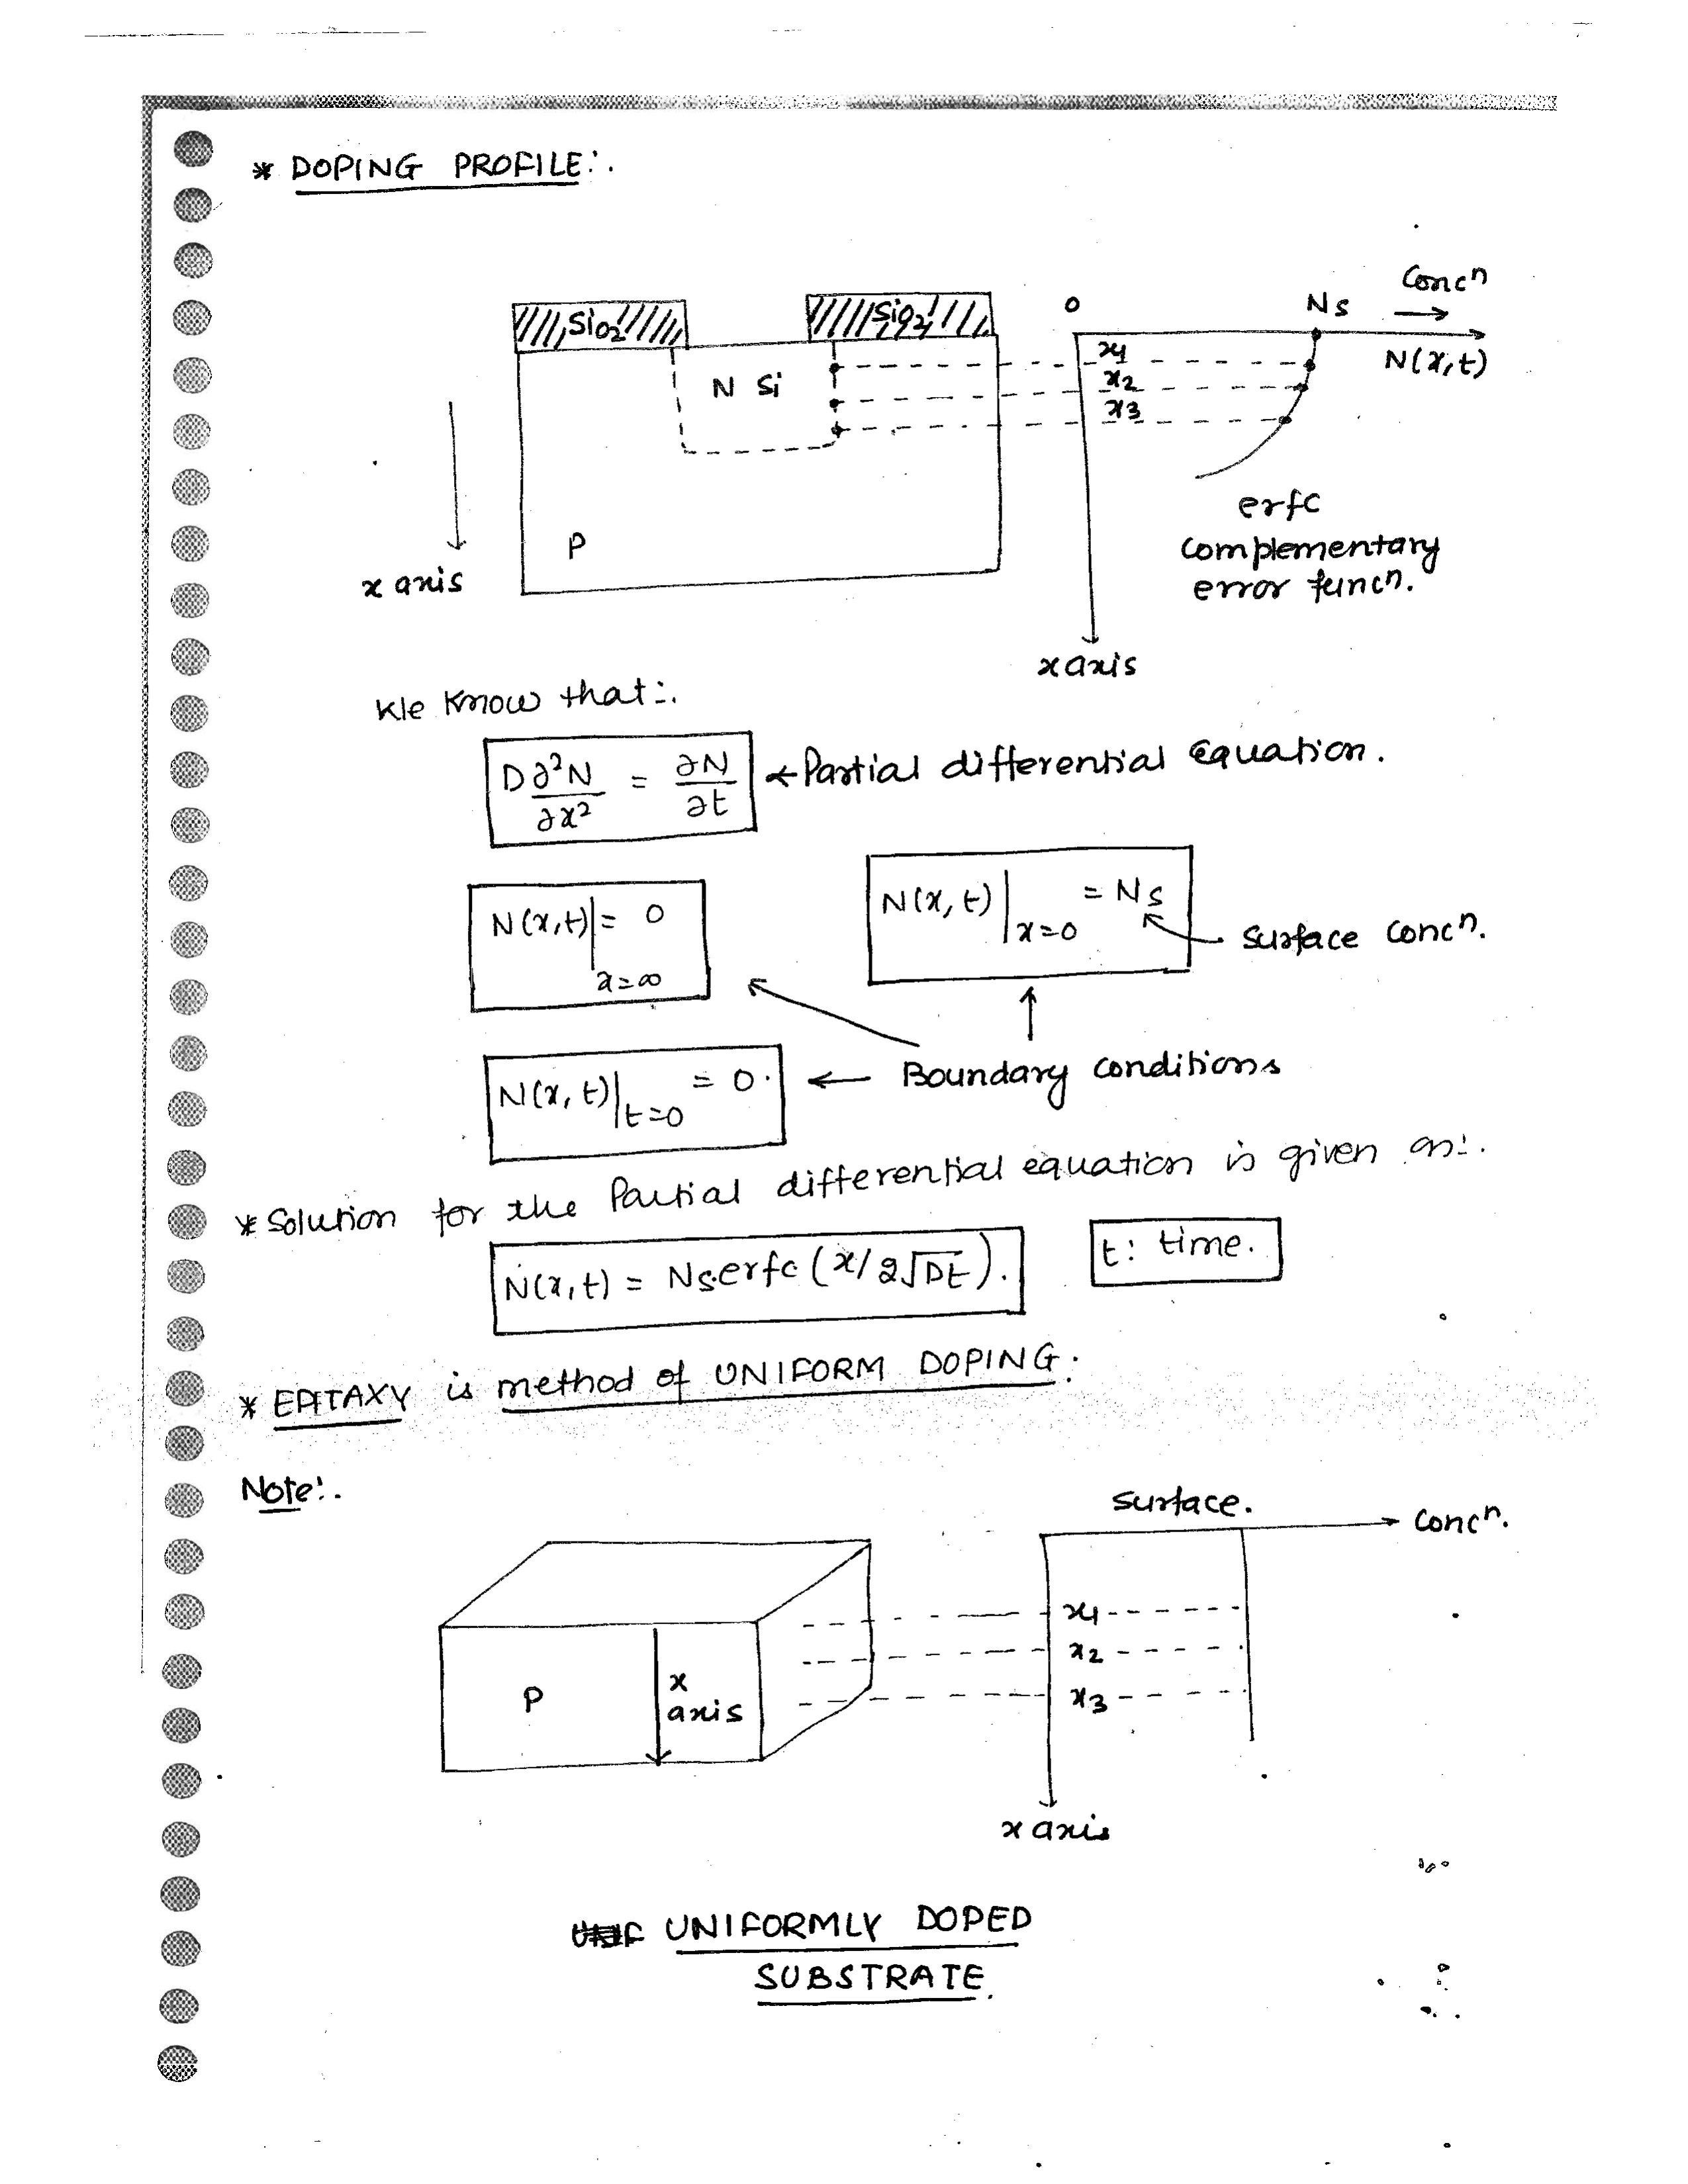 * DOPING PROFILE:.
SiO2
SiO2
N Si
P
x axis
0
Ns
Concⁿ
N(x,t)
x1
x2
x3
erfc
complementary
error funcⁿ.
x axis
We know that:.
D∂²N/∂x² = ∂N/∂t ← Partial differential Equation.
N(x,t)|x=∞ = 0
N(x,t)|x=0 = Ns
Surface Concⁿ.
N(x,t)|t=0 = 0. ← Boundary conditions
* Solution for the Partial differential equation is given as:.
N(x,t) = Ns erfc (x/2√Dt).
t: time.
* EPITAXY is method of UNIFORM DOPING:
Note:.
P
x
axis
Surface.
Concⁿ.
x1
x2
x3
x axis
UNIFORMLY DOPED
SUBSTRATE.